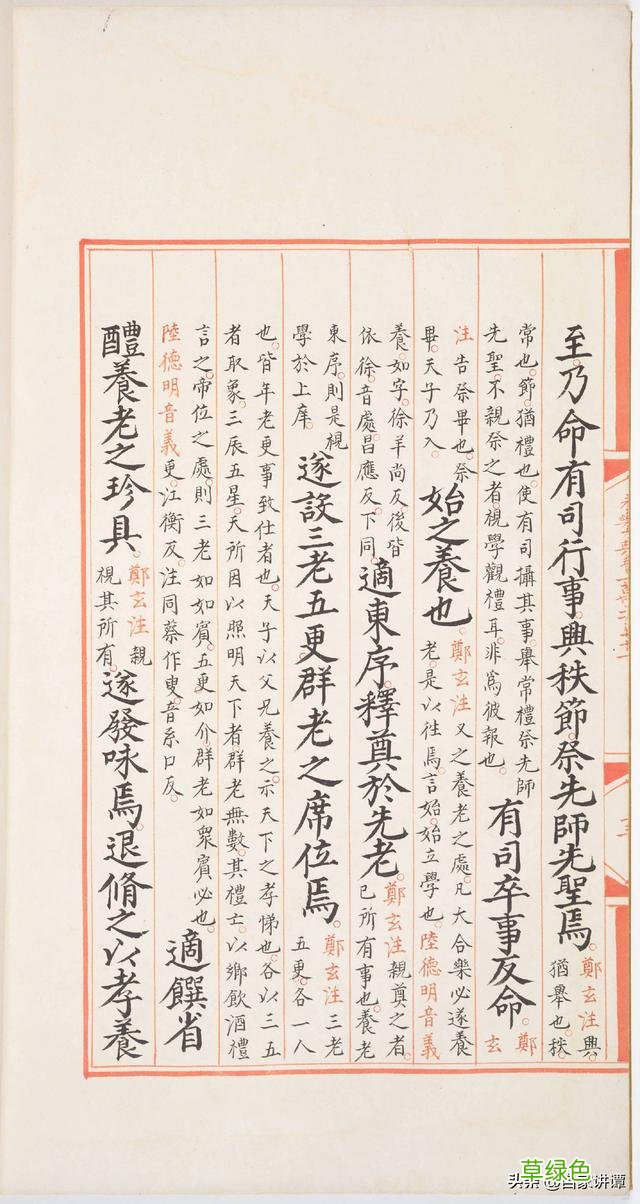 至乃命有司行事興秩節祭先師先聖焉
鄭玄注興
猶舉也秩
常也節猶禮也使有司攝其事舉常禮祭先師
先聖不親祭之者視學觀禮耳非爲彼報也
有司卒事反命
鄭
玄
注告祭畢也祭
畢天子乃入
始之養也
鄭玄注又之養老之處凡大合樂必遂養
老是以往焉言始始立學也陸德明音義
養如字徐羊尚反後皆
依徐音處昌應反下同
適東序釋奠於先老
鄭玄注親奠之者
已所有事也養老
東序則是視
學於上庠
遂設三老五更群老之席位焉
鄭玄注三老
五更各一人
也皆年老更事致仕者也天子以父兄養之示天下之孝悌也各以三五
者取象三辰五星天所因以照明天下者群老無數其禮亡以鄉飲酒禮
言之帝位之處則三老如如賓五更如介群老如衆賓必也
陸德明音義更江衡反注同蔡作叟音系口反
適饌省
醴養老之珍具
鄭玄注親
視其所有
遂發咏焉退脩之以孝養
草绿色
头条 @家讲谭